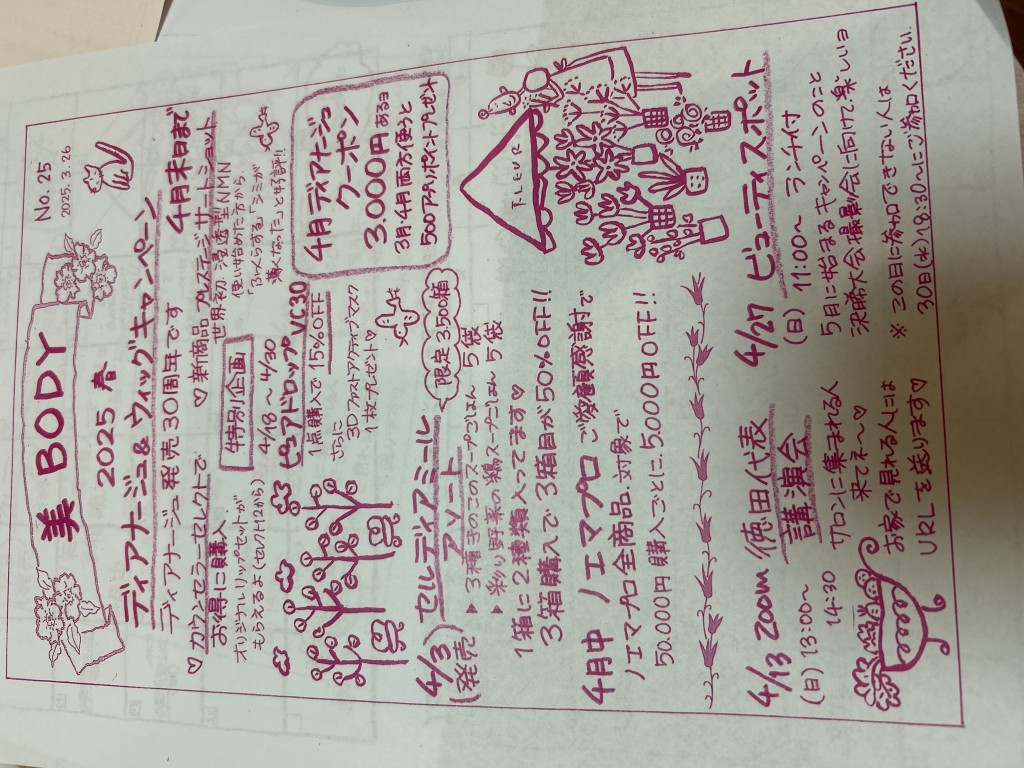 美 BODY
No. 25
2025. 3. 26
2025 春
ディアナージュ&ウィッグキャンペーン
4月末日まで
ディアナージュ発売30周年です
♡カウンセラーセレクトで
お得に購入
オリジナルリップセットが
もらえるよ(セレクト12から)
♡新商品 プレステージサートショット
世界初 浸透型NMN
使い始めた方から、
薄くなった」と好評!!
特別企画
4/18〜4/30
ピュアドロップVC30
1点購入で15%OFF
さらに
3Dファストアクティブマスク
1枚プレゼント♡
4月ディアナージュ
クーポン
3.000円あるョ
3月4月両方使うと
500アーテンポイントプレゼント
4/3) セルディアミール
(発売) アソート
限定3,500箱
▶3種きのこのスープごはん 5袋
▶彩り野菜の鶏スープごはん 5袋
1箱に2種類入ってます♡
3箱購入で3箱目が50%OFF!!
FLEUR
4月中 ノエマプロ ご愛顧感謝で
ノエマプロ全商品対象で
50.000円購入ごとに.5.000円OFF!!
4/13 ZOOM 徳田代表
(日) 13:00〜 講演会
14:30
サロンに集まれる人
来てネ〜♡
お家で見れる人には
URLを送ります♡
4/27 ビューティスポット
(日) 11:00〜 ランチ付
5月に始まるキャンペーンのこと
決勝大会撮影会に向けて、楽しいョ
※ この日に参加できない人は
30日(水)18:30〜にご参加ください.